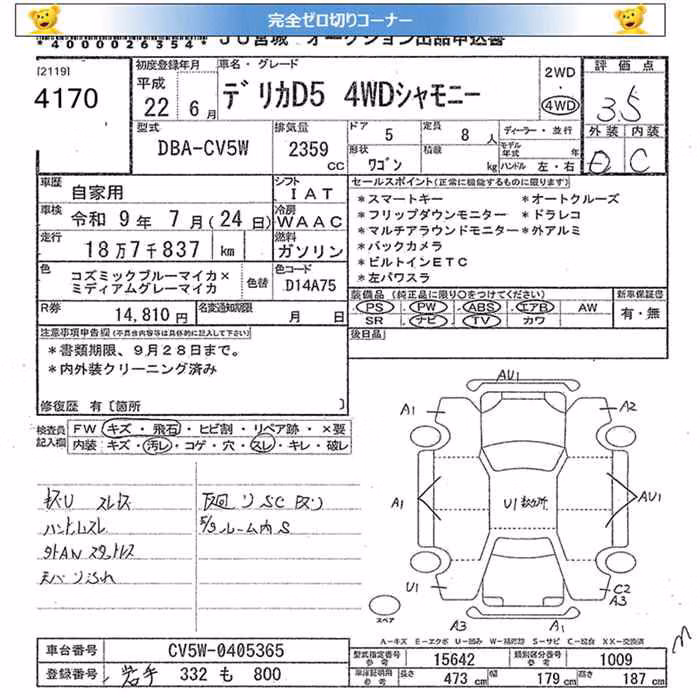 完全ゼロ切りコーナー
*4000026354* JU宮城 オークション出品申込書
[2119]
4170
初度登録年月
平成
22年 6月
車名・グレード
デリカD5 4WDシャモニー
2WD
・
4WD
評価点
3.5
外装 内装
D C
型式
DBA-CV5W
排気量
2359
CC
ドア
5
定員
8人
ディーラー・並行
形状
ワゴン
積載
kg
モデル年式 年
ハンドル 左・右
車歴
自家用
シフト
IAT
車検
令和 9年 7月(24日)
冷房
WAAC
走行
18万7千837 km
燃料
ガソリン
色
コズミックブルーマイカ×
ミディアムグレーマイカ
色替
色コード
D14A75
R券
14,810円
名変通知期限
月 日
セールスポイント(正常に機能するものに限ります)
*スマートキー *オートクルーズ
*フリップダウンモニター *ドラレコ
*マルチアラウンドモニター *外アルミ
*バックカメラ
*ビルトインETC
*左パワスラ
装備品(純正品に限り○をつけてください)
PS PW ABS エアB AW
SR ナビ TV カワ
新車保証書
有・無
後日品
注意事項申告欄(不具合内容等は具体的に記入して下さい)
*書類期限、9月28日まで。
*内外装クリーニング済み
修復歴 有〔箇所 〕
検査員記入欄
FW キズ・飛石・ヒビ割・リペア跡・×要
内装 キズ・汚レ・コゲ・穴・スレ・キレ・破レ
ハンドルスレ
ルーム内S
AU1
A1 A2
A1 U1 AU1
U1 C2
A3
A3 A1
スペア
A-キズ E-エクボ U-凹み W-補修跡 S-サビ C-腐食 XX-交換済
車台番号 CV5W-0405365
登録番号 岩手 332 も 800
型式指定番号 参考 15642 類別区分番号 参考 1009
車庫証明用 参考 長さ 473 cm 幅 179 cm 高さ 187 cm